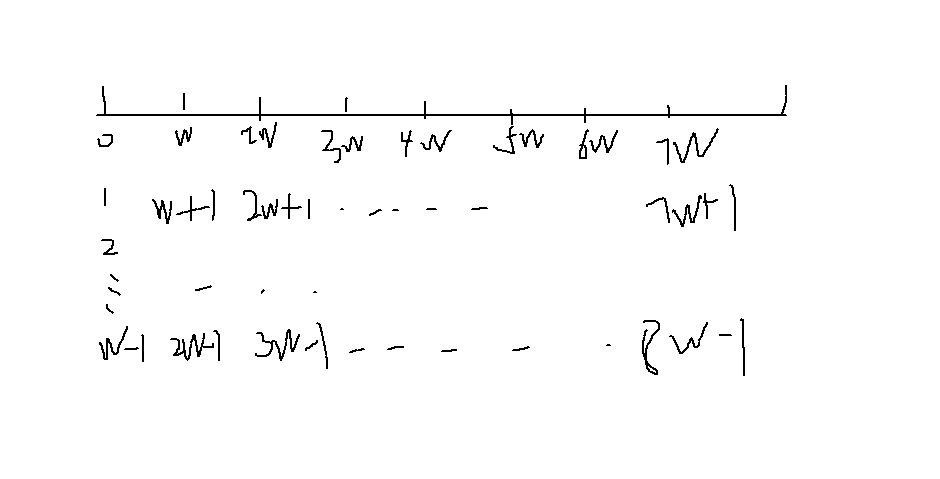 0 w 2W 3w 4w 5w 6w 7W
1 w+1 2w+1 . - . - - - 7w+1
2
⋮ - . .
W-1 2W-1 3W-1 - - - - . 8W-1